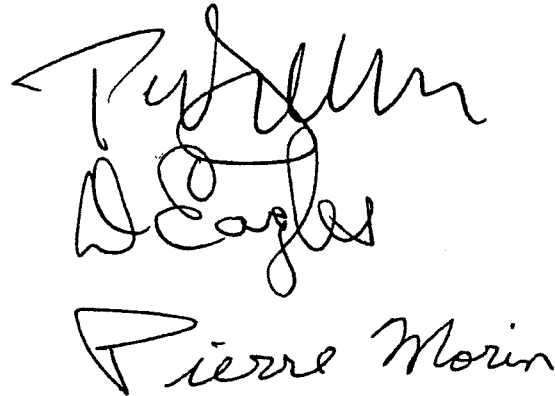 D Eagles
Pierre Morin